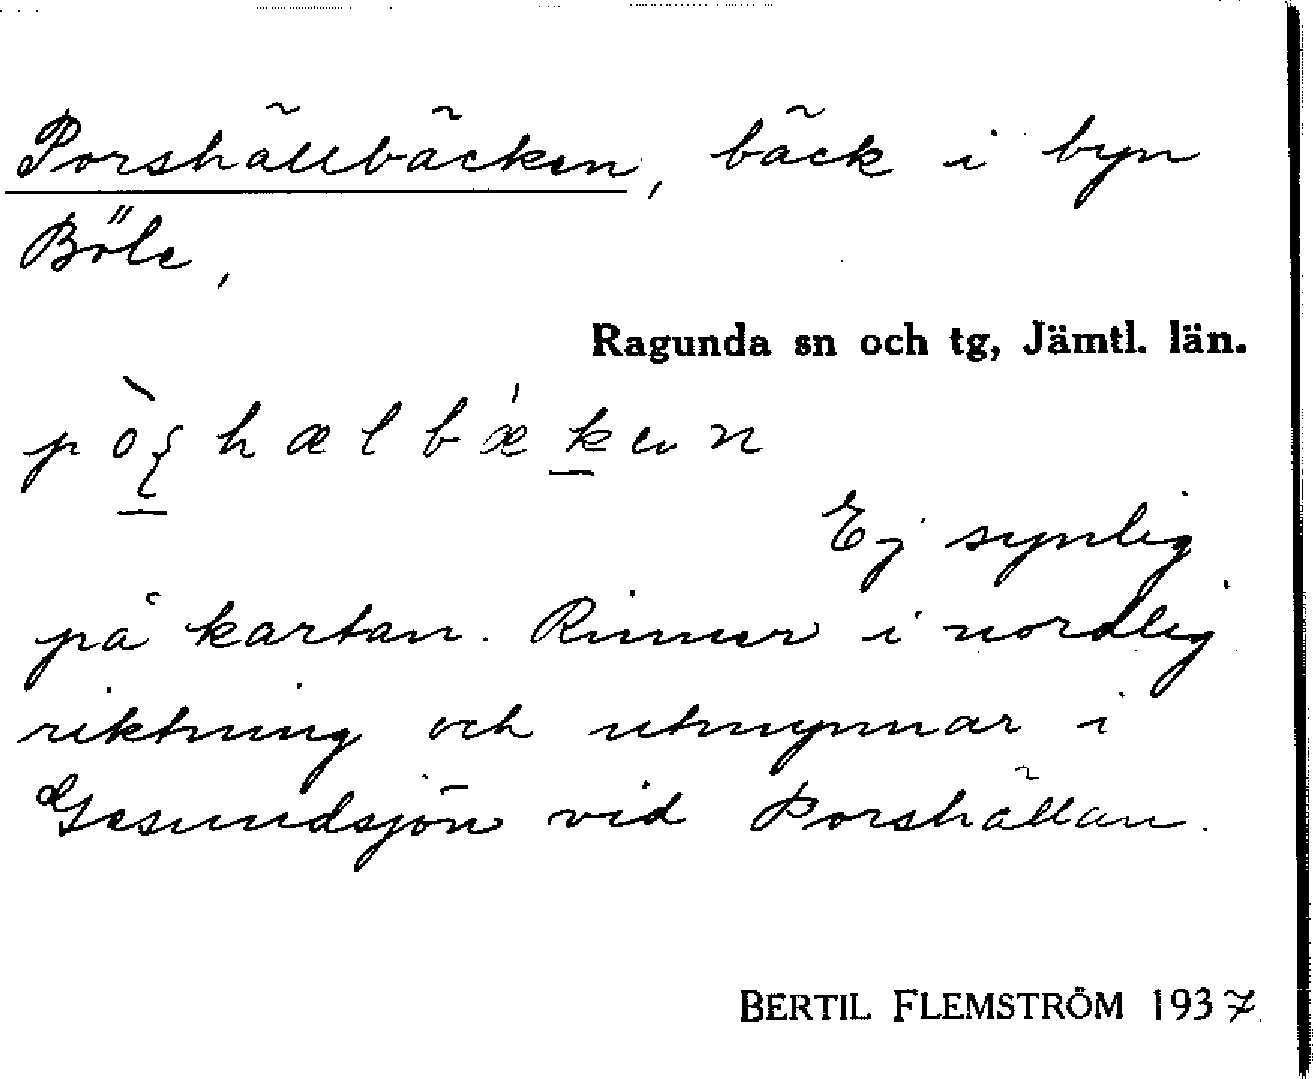 Porshällbäcken, bäck i byn
Böle,
Ragunda sn och tg, Jämtl. län.
Ej synlig
på kartan. Rinner i nordlig
riktning och utmynnar i
Gesundsjön vid Porshällan.
BERTIL FLEMSTRÖM 1937